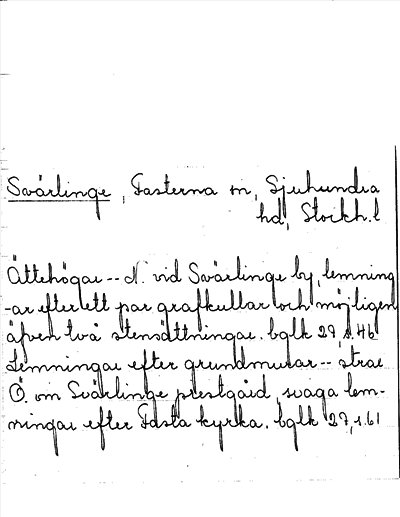 Svärlinge, Fasterna sn, Sjuhundra
hd, Stockh.l
Ättehögar -- N. vid Svärlinge by, lemning
-ar efter ett par grafkullar och möjligen
äfven två stensättningar. bglk 29, s.46
Lemningar efter grundmurar -- strax
Ö. om Svärlinge prestgård, svaga lem-
ningar efter Fasta kyrka. bglk 27, s.61